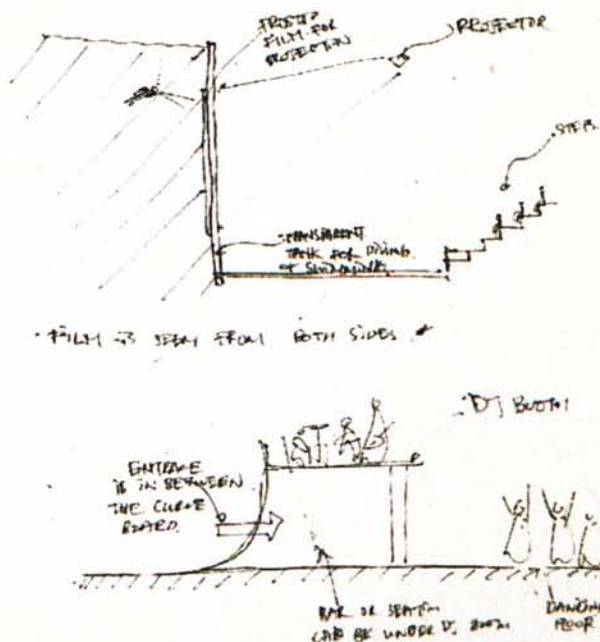 FROSTED
FILM FOR
PROJECTION
PROJECTOR
STEPS
TRANSPARENT
TANK FOR DIVING
OF SWIMMING
• FILM IS SEEN FROM BOTH SIDES
DJ BOOTH
ENTRACE
IS IN BETWEEN
THE CURVE
BOARD.
BAR OR SEATING
CAN BE UNDER DJ BOOTH
DANCING
FLOOR